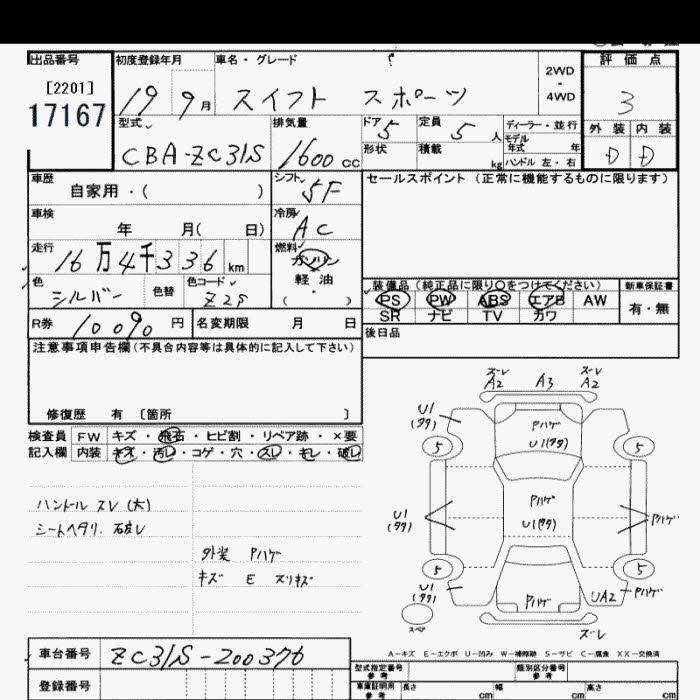 出品番号 初度登録年月 車名・グレード 2WD ・ 4WD 評価点
[2201]
17167
19 9月 スイフト スポーツ 3
型式 排気量 ドア 5 定員 5人 ディーラー・並行 外装 内装
CBA-ZC31S 1600cc 形状 積載 kg モデル年式 年 D D
ハンドル 左・右
車歴 シフト 5F セールスポイント (正常に機能するものに限ります)
自家用・( )
車検 冷房 AC
年 月( 日)
走行 燃料
16万4千336km ガソリン
軽油
( ・ )
色 シルバー 色替 色コード Z2S
装備品 (純正品に限り○をつけてください) 新車保証書
PS PW ABS エアB AW 有・無
SR ナビ TV カワ
R券 10090円 名変期限 月 日
後日品
注意事項申告欄(不具合内容等は具体的に記入して下さい)
修復歴 有 〔箇所 〕
検査員 FW キズ・飛石・ヒビ割・リペア跡・×要
記入欄 内装 キズ・汚レ・コゲ・穴・スレ・キレ・破レ
ハンドル スレ(大)
シートヘタリ.
外装 Pハゲ
キズ E スリキズ
ズレ A2 A3 ズレ A2
U1 (タタ) Pハゲ
U1(タタ)
5 5
Pハゲ
U1 (タタ) U1(タタ) Pハゲ
5 5
U1 (タタ) Pハゲ UA2 Pハゲ
スペア
ズレ
A－キズ E－エクボ U－凹み W－補修跡 S－サビ C－腐食 XX－交換済
車台番号 ZC31S-200376
型式指定番号 参考 類別区分番号 参考
登録番号 車庫証明用 参考 長さ cm 幅 cm 高さ cm